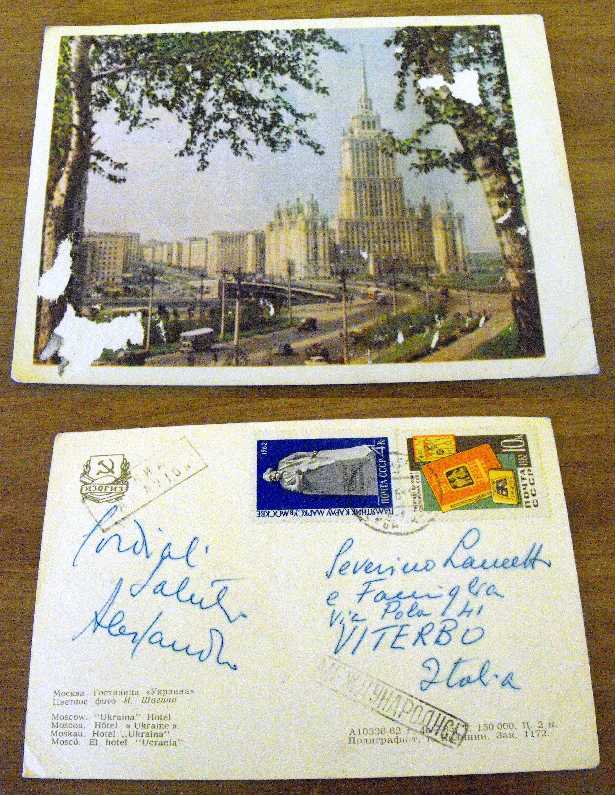 АВИА
1962
ПОЧТА СССР 4К
ПАМЯТНИК КАРЛУ МАРКСУ В МОСКВЕ
10К
1962
ПОЧТА
СССР
Cordiali
Saluti
Alessandro
Severino
e Famiglia
Via Pola 41
VITERBO
Italia
МЕЖДУНАРОДНОЕ
Москва. Гостиница «Украина»
Цветное фото И. Шагина
Moscow. "Ukraina" Hotel
Moscou. Hôtel «Ukraine»
Moskau. Hotel „Ukraina"
Moscú. El hotel "Ucrania"
А10336-62 г. 150 000. Ц. 2 к.
Зак. 1172.